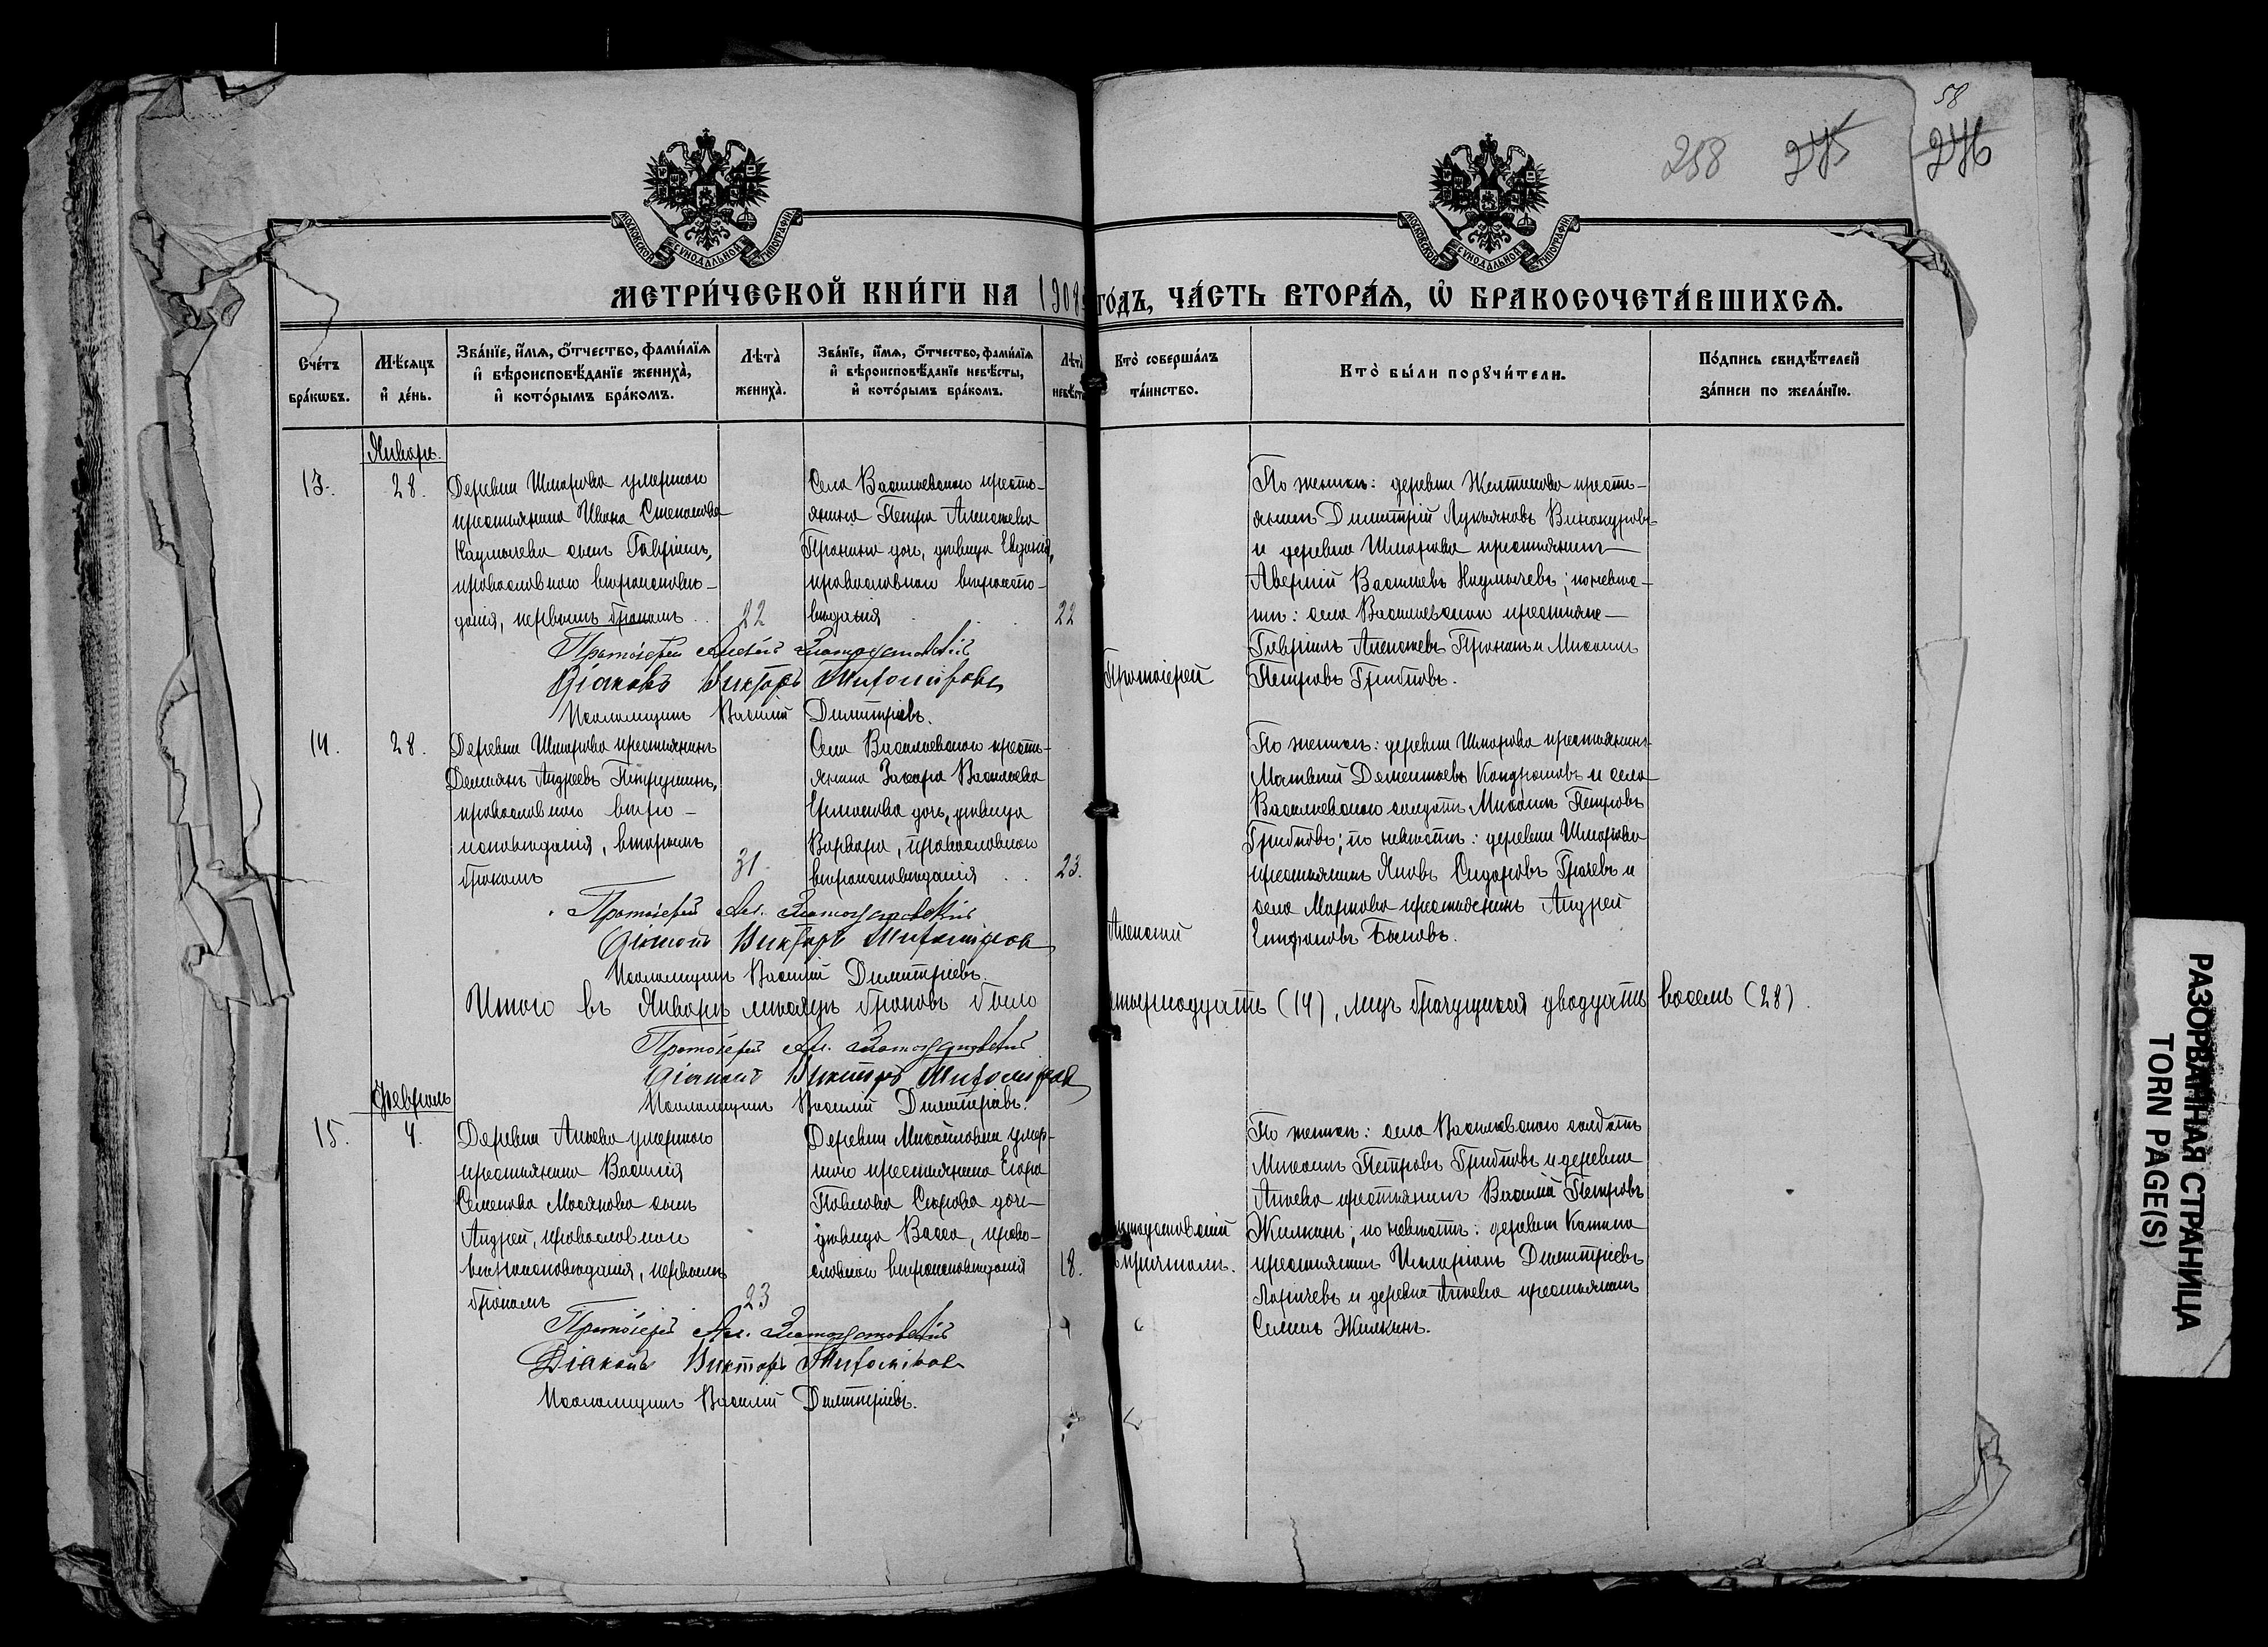 58
258 245 246
МОСКОВСКОЙ СѴНОДАЛЬНОЙ ТИПОГРАФІИ
МОСКОВСКОЙ СѴНОДАЛЬНОЙ ТИПОГРАФІИ
МЕТРИ́ЧЕСКОЙ КНИ́ГИ НА 1908 ГО́ДЪ, ЧА́СТЬ ВТОРА́Ѧ, Ѡ҆ БРАКОСОЧЕТА́ВШИХСѦ.
Сче́тъ бра́кѡвъ.
Мѣ́сѧцъ и҆ де́нь.
Зва́нїе, и҆́мѧ, ѻ҆́тчество, фами́лїѧ и҆ вѣроисповѣ́данїе жениха̀, и҆ кото́рымъ бра́комъ.
Лѣта̀ жениха̀.
Зва́нїе, и҆́мѧ, ѻ҆́тчество, фами́лїѧ и҆ вѣроисповѣ́данїе невѣ́сты, и҆ кото́рымъ бра́комъ.
Лѣта̀ невѣ́сты
Кто̀ соверша́лъ та́инство.
Кто̀ бы́ли порꙋчи́тели.
По́дпись свидѣ́телей за́писи по жела́нїю.
Январь.
13. 28.
Деревни Шмарова умершаго
крестьянина Ивана Степанова
Наумычева сынъ Гавріилъ,
православнаго вѣроисповѣ-
данія, первымъ бракомъ
22
Села Васильевскаго кресть-
янина Петра Алексѣева
Пронина дочь, дѣвица Евдокія,
православнаго вѣроиспо-
вѣданія
22
По женихѣ: деревни Желтикова кресть-
янинъ Димитрій Лукьяновъ Винокуровъ
и деревни Шмарова крестьянинъ
Аверкій Васильевъ Наумычевъ; по невѣс-
тѣ: села Васильевскаго крестьяне
Гавріилъ Алексѣевъ Пронинъ и Михаилъ
Петровъ Грибковъ.
Протоіерей
Протоіерей Алексій Златоустовскій
Діаконъ Викторъ
Псаломщикъ Василій Димитріевъ.
14. 28.
Деревни Шмарова крестьянинъ
Демьянъ Андреевъ Петрушинъ,
православнаго вѣро-
исповѣданія, вторымъ
бракомъ
31.
Села Васильевскаго кресть-
янина Захара Васильева
дочь, дѣвица
Варвара, православнаго
вѣроисповѣданія
23.
По женихѣ: деревни Шмарова крестьянинъ
Матвей Дементьевъ Кондрашовъ и села
Васильевскаго солдатъ Михаилъ Петровъ
Грибковъ; по невѣстѣ: деревни Шмарова
крестьянинъ Яковъ Сидоровъ Грачевъ и
села Маркова крестьянинъ Андрей
Епифановъ Быковъ.
Алексій
Протоіерей Ал. Златоустовскій
Діаконъ Викторъ
Псаломщикъ Василій Димитріевъ.
Итого въ Январѣ мѣсяцѣ браковъ было четырнадцать (14), лицъ брачущихся двадцать восемь (28).
Протоіерей Ал. Златоустовскій
Діаконъ Викторъ
Псаломщикъ Василій Димитріевъ.
Февраль
15. 4.
Деревни умершаго
крестьянина Василія
Семенова Мосякова сынъ
Андрей, православнаго
вѣроисповѣданія, первымъ
бракомъ
23
Деревни Михайловки умер-
шаго крестьянина Егора
Павлова дочь
дѣвица Васса, право-
славнаго вѣроисповѣданія
18.
По женихѣ: села Васильевскаго солдатъ
Михаилъ Петровъ Грибковъ и деревни
крестьянинъ Василій Петровъ
Жилкинъ; по невѣстѣ: деревни
крестьянинъ Иларіонъ Димитріевъ
Ларичевъ и деревни крестьянинъ
Семенъ Жилкинъ.
Златоустовскій
съ причтомъ.
Протоіерей Ал. Златоустовскій
Діаконъ Викторъ
Псаломщикъ Василій Димитріевъ.
РАЗОРВАННАЯ СТРАНИЦА
TORN PAGE(S)